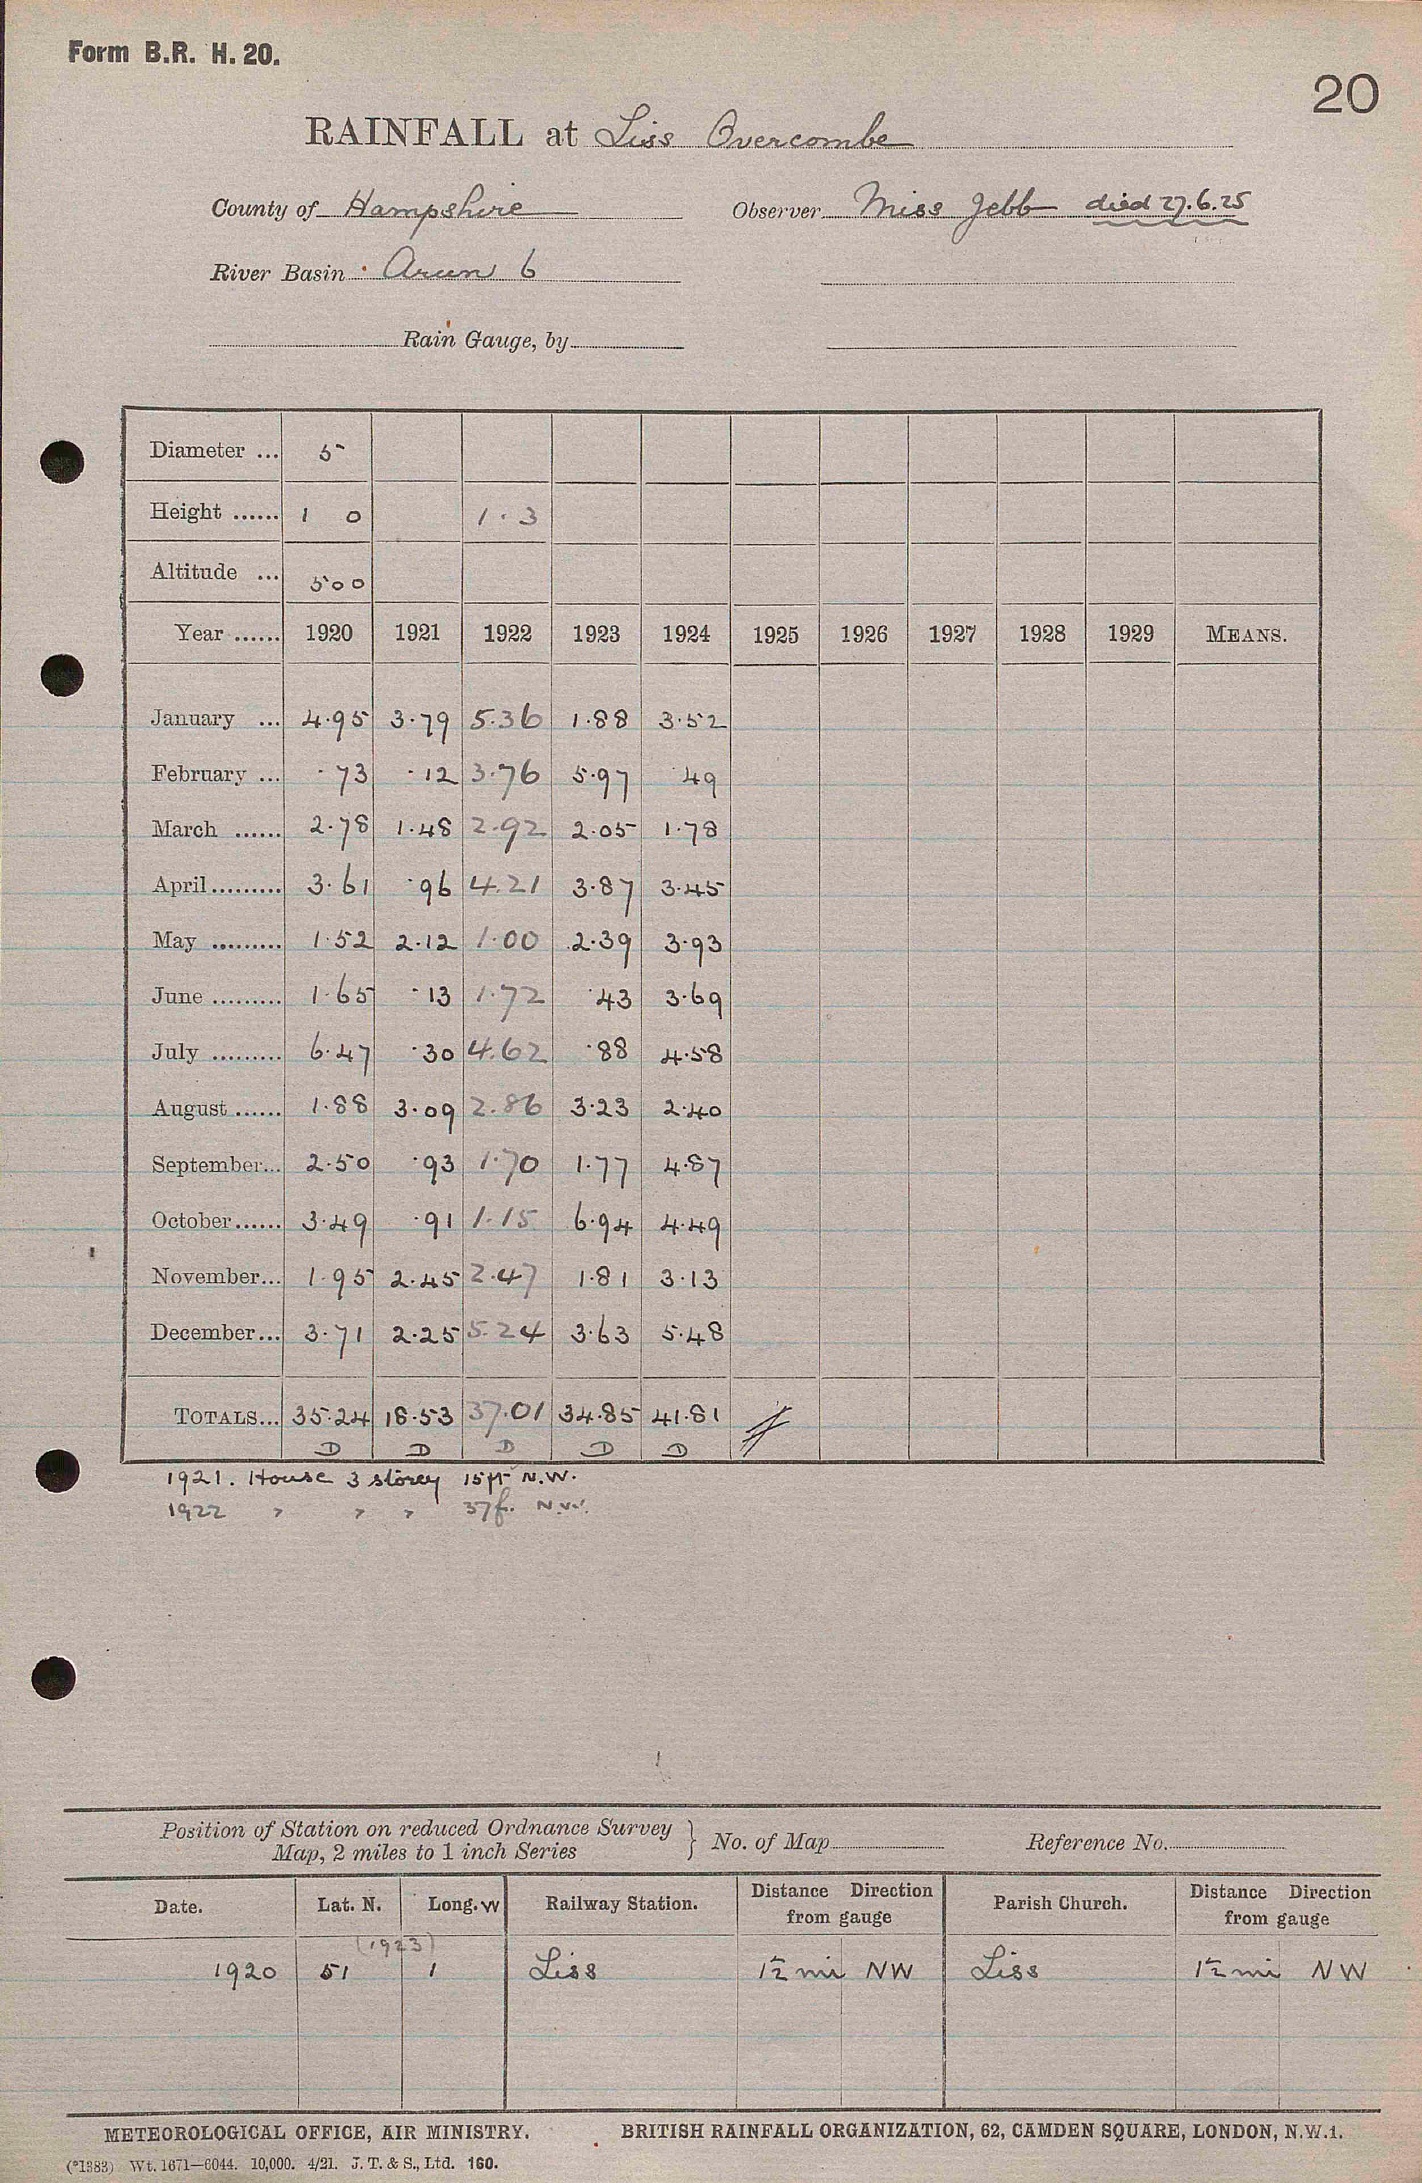 Form B.R. H. 20.
20
RAINFALL at Liss Overcombe
County of Hampshire Observer Miss Jebb died 27.6.25
River Basin Arun 6
Rain Gauge, by
Diameter ... 5
Height ...... 1 0 1.3
Altitude ... 500
Year ...... 1920 1921 1922 1923 1924 1925 1926 1927 1928 1929 MEANS.
January ... 4.95 3.79 5.36 1.88 3.52
February ... .73 .12 3.76 5.97 .49
March ...... 2.78 1.48 2.92 2.05 1.78
April ......... 3.61 .96 4.21 3.87 3.45
May ......... 1.52 2.12 1.00 2.39 3.93
June ......... 1.65 .13 1.72 .43 3.69
July ......... 6.47 .30 4.62 .88 4.58
August ...... 1.88 3.09 2.86 3.23 2.40
September... 2.50 .93 1.70 1.77 4.87
October...... 3.49 .91 1.15 6.94 4.49
November... 1.95 2.45 2.47 1.81 3.13
December... 3.71 2.25 5.24 3.63 5.48
TOTALS... 35.24 18.53 37.01 34.85 41.81
D D D D D
1921. House 3 storey 15ft N.W.
1922 " " " 37f. N.W.
Position of Station on reduced Ordnance Survey } No. of Map Reference No.
Map, 2 miles to 1 inch Series
Date. Lat. N. Long. W Railway Station. Distance Direction from gauge Parish Church. Distance Direction from gauge
(1923)
1920 51 1 Liss 1½ mi NW Liss 1½ mi NW
METEOROLOGICAL OFFICE, AIR MINISTRY. BRITISH RAINFALL ORGANIZATION, 62, CAMDEN SQUARE, LONDON, N.W.1.
(*1383) Wt. 1671—6044. 10,000. 4/21. J. T. & S., Ltd. 160.